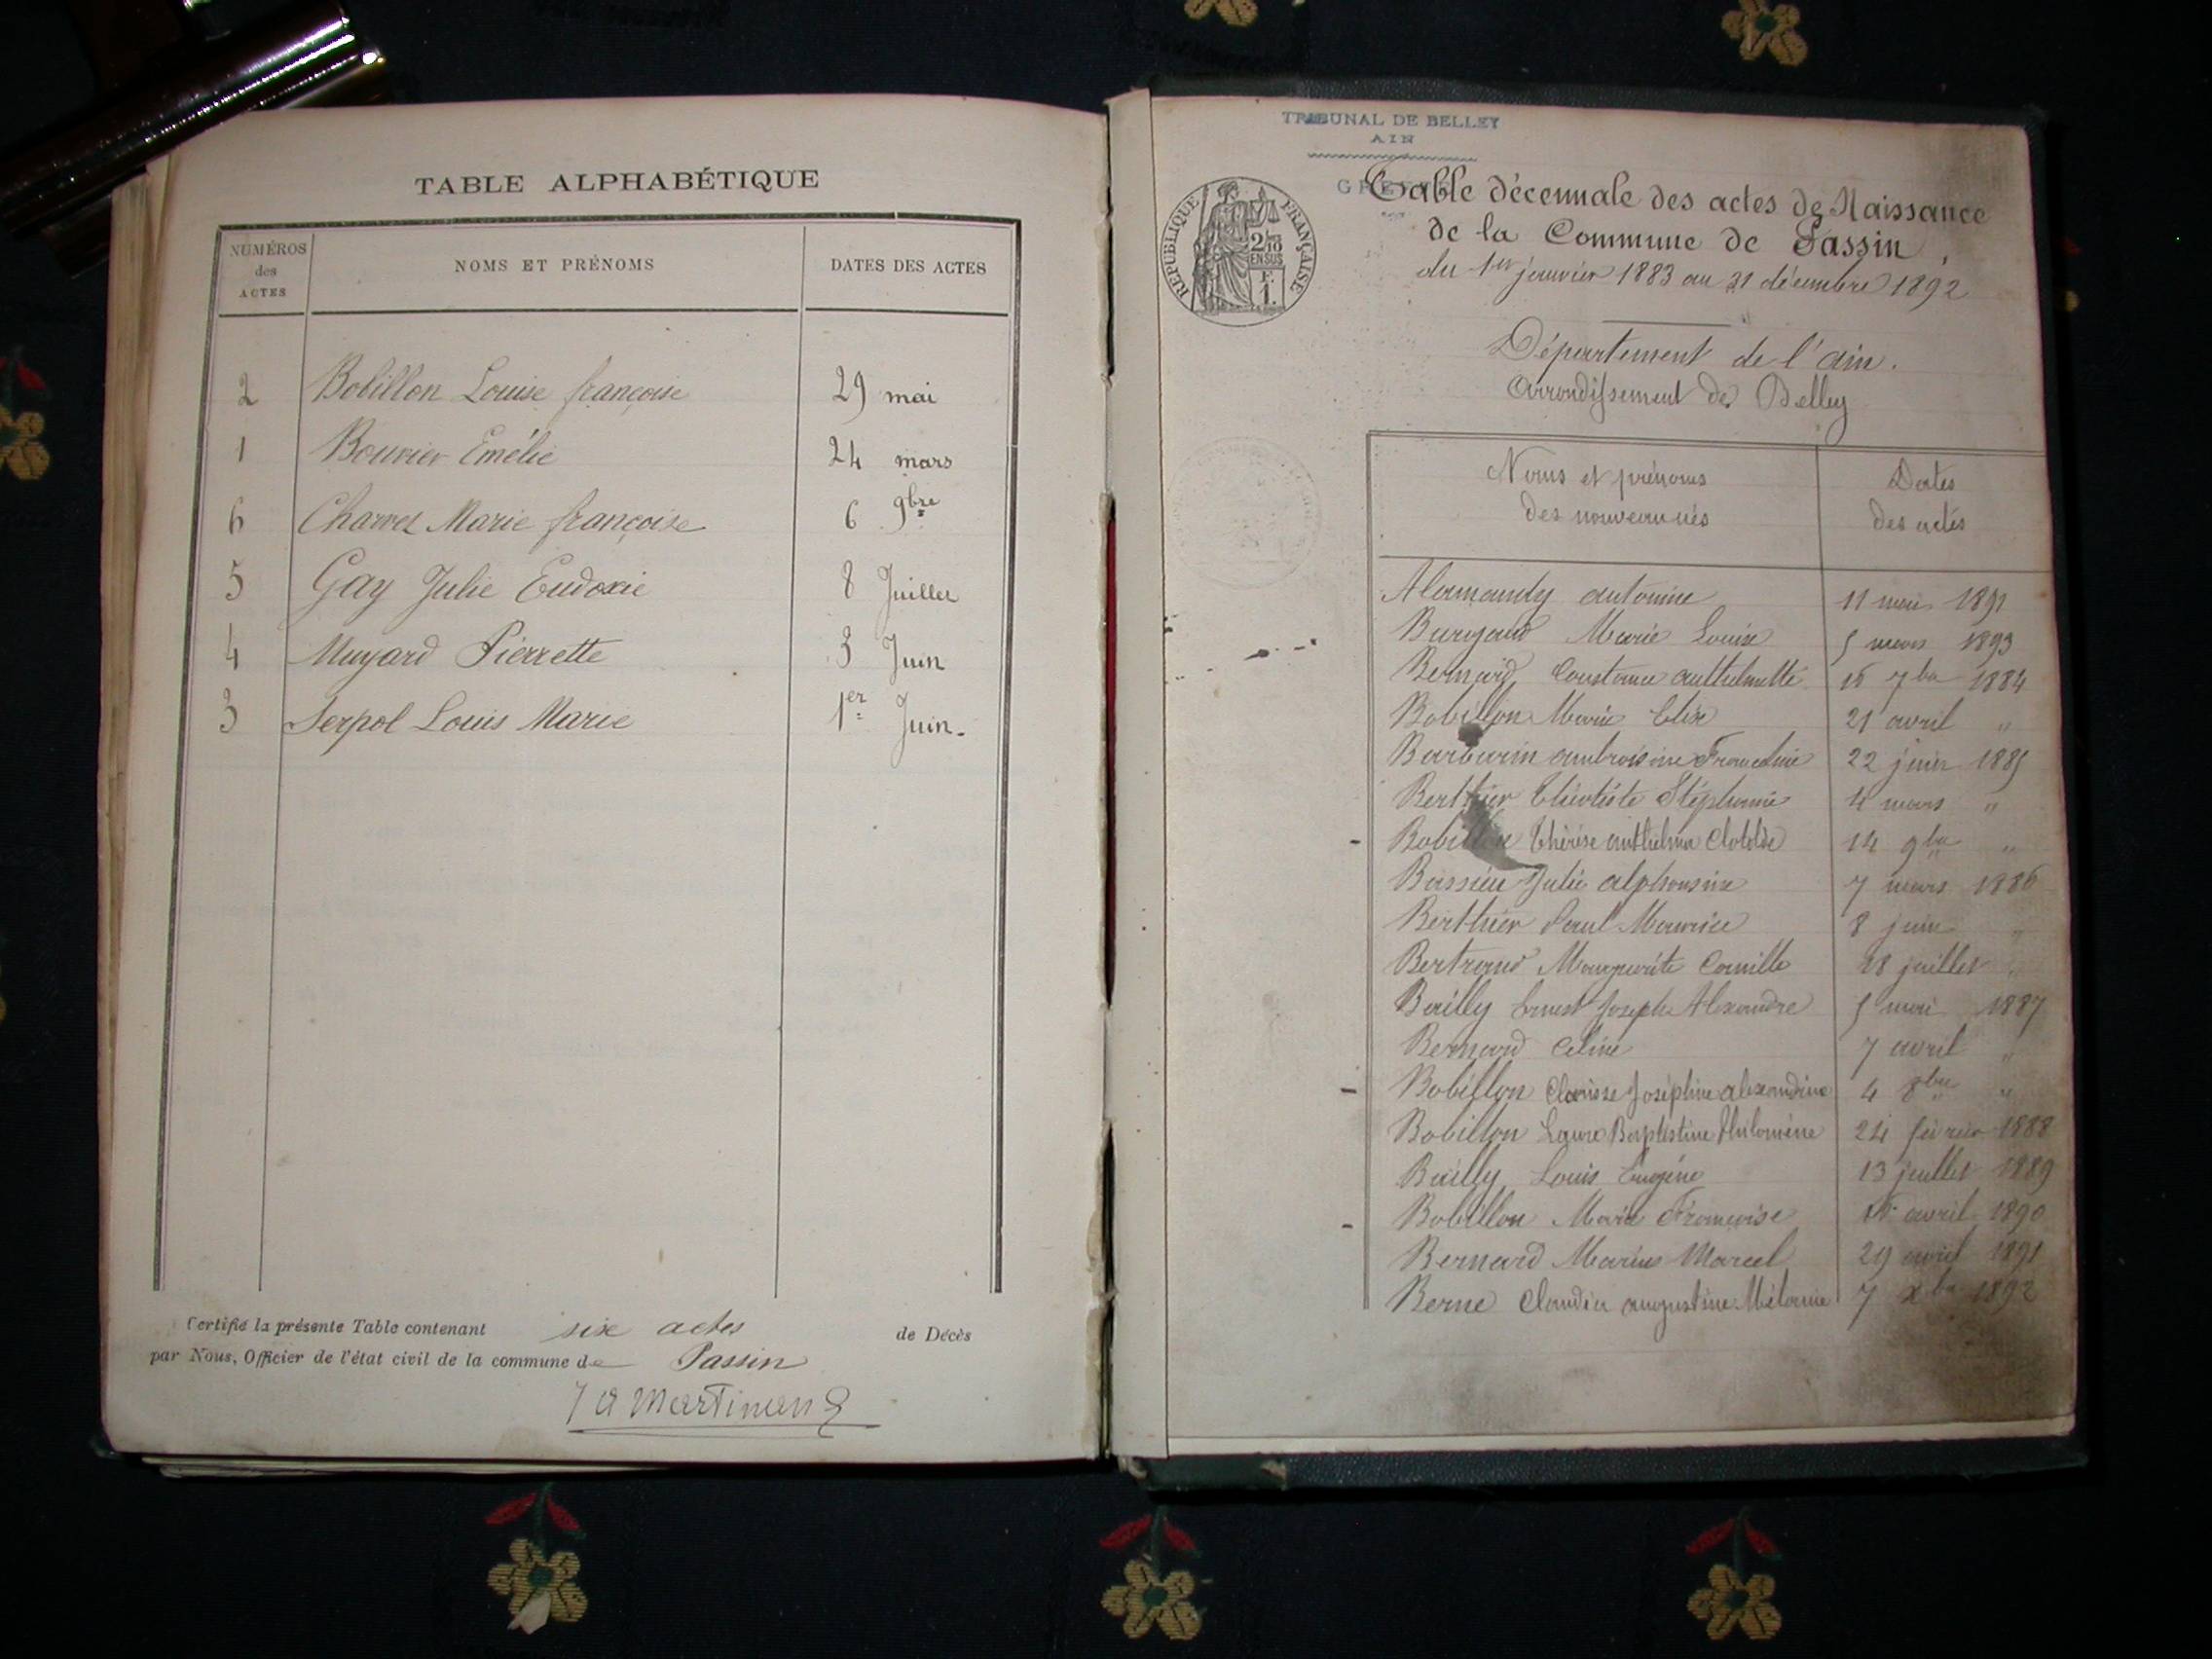 TABLE ALPHABÉTIQUE
NUMÉROS des ACTES NOMS ET PRÉNOMS DATES DES ACTES
2 Bobillon Louise françoise 29 mai
1 Bouvier Emélie 24 mars
6 Charvet Marie françoise 6 9bre
5 Gay Julie Eudoxie 8 Juillet
4 Muyard Pierrette 3 Juin
3 Serpol Louis Marie 1er Juin.
Certifié la présente Table contenant six actes de Décès
par Nous, Officier de l'état civil de la commune de Passin
Martinand
TRIBUNAL DE BELLEY
AIN
GREFFE
RÉPUBLIQUE FRANÇAISE
2/10
EN SUS
F.
1.
Table décennale des actes de Naissance
de la Commune de Passin,
du 1er janvier 1883 au 31 décembre 1892
Département de l'ain.
Arrondissement de Belley
Noms et prénoms des nouveau nés Dates des actes
Alamandy antonine 11 mai 1891
Burgaud Marie Louise 5 mars 1893
Bernard Constance anthelmette 7bre 1884
Bobillon Marie Elise 21 avril "
Barbarin ambroisine Francoline 22 juin 1885
Berthier Théotiste Stéphanie 4 mars "
Bobillon Thérèse anthelma Clotilde 14 9bre "
Bussieu Julie alphonsine 7 mars 1886
Berthier Paul Maurice 8 juin "
Bertrand Marguerite Camille 18 juillet "
Bailly Ernest Joseph Alexandre 5 mai 1887
Bernard Céline 7 avril "
Bobillon Clarisse Joséphine alexandrine 4 8bre "
Bobillon Laure Baptistine Philomène 24 février 1888
Bailly Louis Eugène 13 juillet 1889
Bobillon Marie Françoise avril 1890
Bernard Marius Marcel 29 avril 1891
Berne Claudia augustine Mélanie 7 xbre 1892